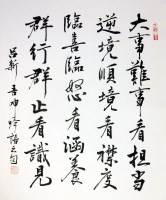 大事難事看担当
逆境順境看襟度
臨喜臨怒看涵養
群行群止看識見
呂新吾呻吟語之句